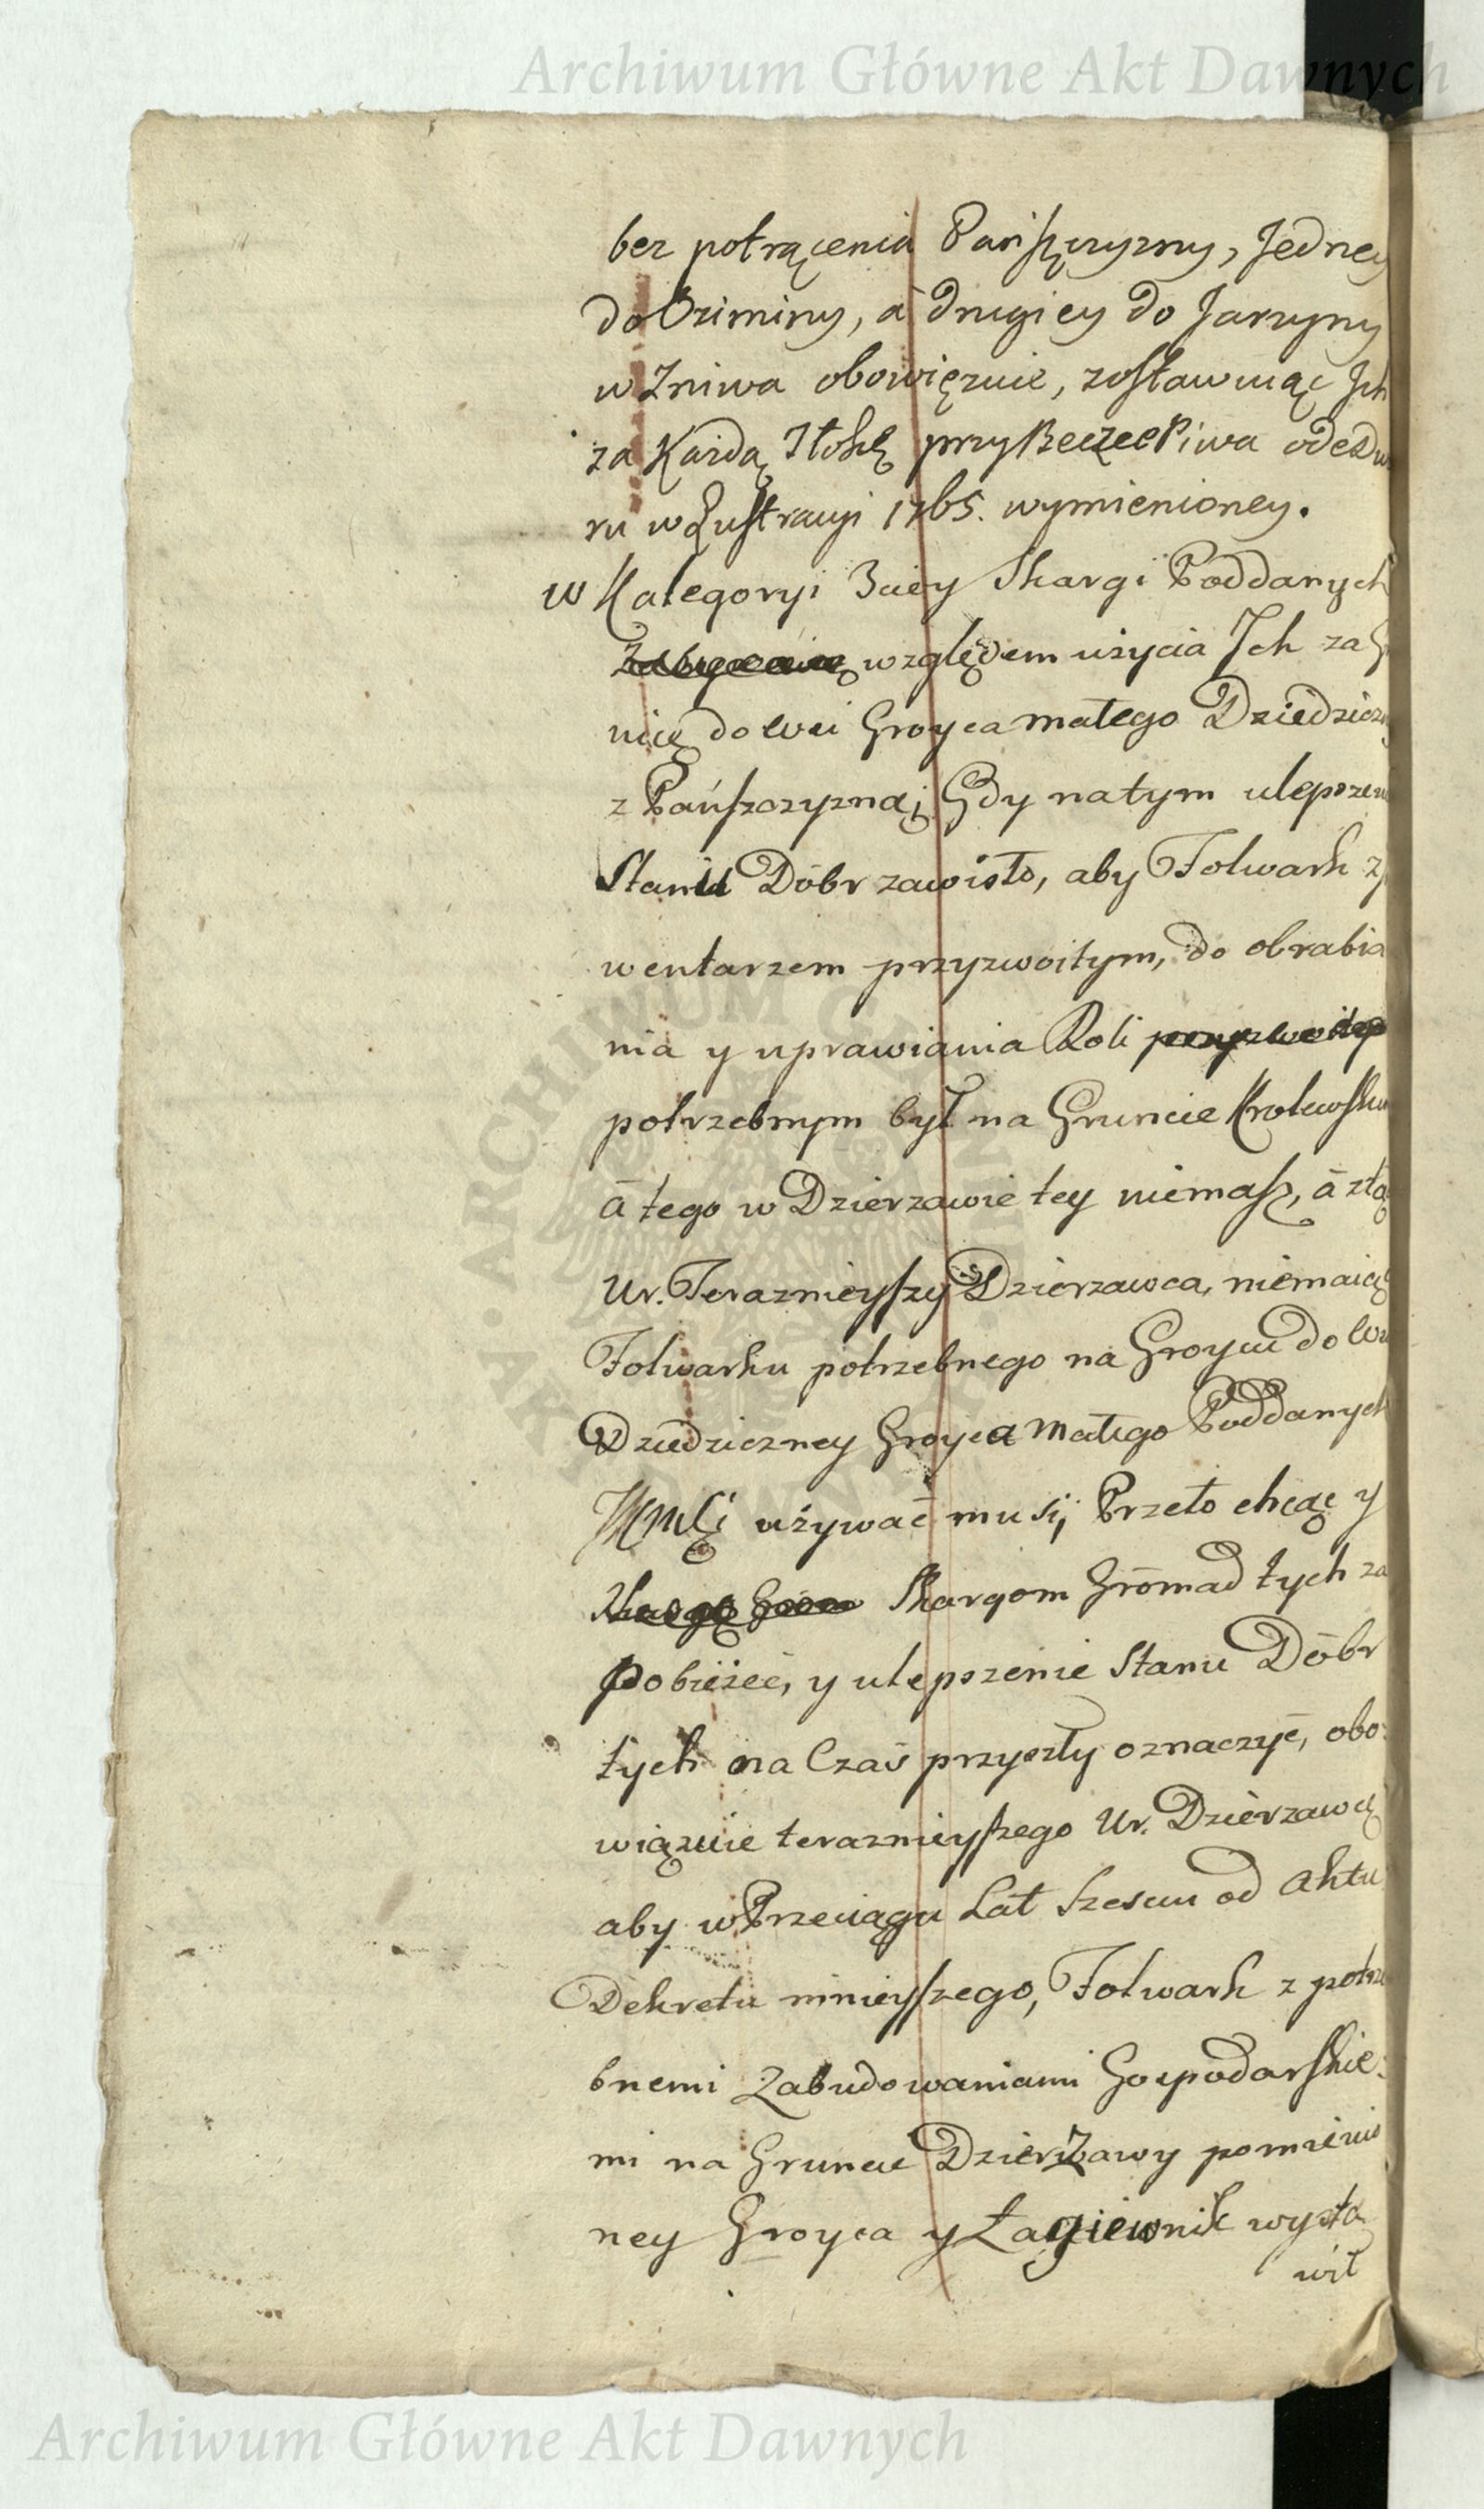 Archiwum Główne Akt Dawnych
bez potrącenia Pańszczyzny, Jedney
do Oziminy, a drugiey do Jarzyny
w Zniwa obowięzuie, zostawuiąc Ich
za Kazdą Tłokę przy Beczce Piwa
ru w Lustracyi 1765. wymienioney.
w Kategoryi 3ciey Skargi Poddanych
względem uzycia Ich za
nicę do wsi Groyca małego Dziedziczn
z Pańszczyzną; Gdy natym ulepszeni
Stanu Dóbr zawisło, aby Folwark z
wentarzem przyzwoitym, do obrabia
nia y uprawiania Roli przyzwoitego
potrzebnym był na Gruncie Krolewskim
á tego w Dzierzawie tey niemasz, á ztą
Ur. Teraznieyszy Dzierzawca, niemaiąc
Folwarku potrzebnego na Groycu do Wsi
Dziedziczney Groyca Małego Poddanych
używać musi; Przeto chcąc y
Skargom Gromad tych za
pobieżeć, y ulepszenie Stanu Dóbr
tych na Czas przyszły oznaczyć, obo:
wiązuie teraznieyszego Ur. Dzierzawcę
aby w Przeciągu Lat Szesciu od Aktu
Dekretu ninieyszego, Folwark z potrze
bnemi Zabudowaniami Gospodarskie:
mi na Gruncie Dzierżawy pomienio
ney Groyca y Łagiewnik wysta
wił
Archiwum Główne Akt Dawnych